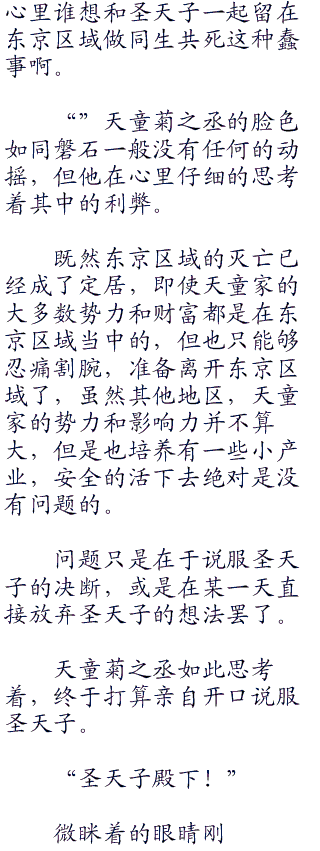 心里谁想和圣天子一起留在
东京区域做同生共死这种蠢
事啊。
“”天童菊之丞的脸色
如同磐石一般没有任何的动
摇，但他在心里仔细的思考
着其中的利弊。
既然东京区域的灭亡已
经成了定居，即使天童家的
大多数势力和财富都是在东
京区域当中的，但也只能够
忍痛割腕，准备离开东京区
域了，虽然其他地区，天童
家的势力和影响力并不算
大，但是也培养有一些小产
业，安全的活下去绝对是没
有问题的。
问题只是在于说服圣天
子的决断，或是在某一天直
接放弃圣天子的想法罢了。
天童菊之丞如此思考
着，终于打算亲自开口说服
圣天子。
“圣天子殿下！”
微眯着的眼睛刚